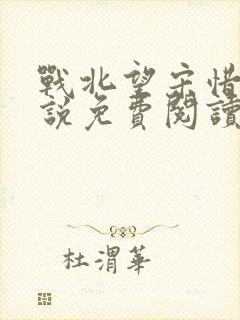 戰北望宋惜
說免費閱讀
杜渭華